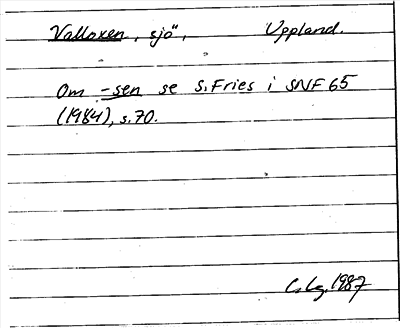 Valloxen, sjö, Uppland.
Om -sen se S. Fries i SNF 65
(1984), s. 70.
1987